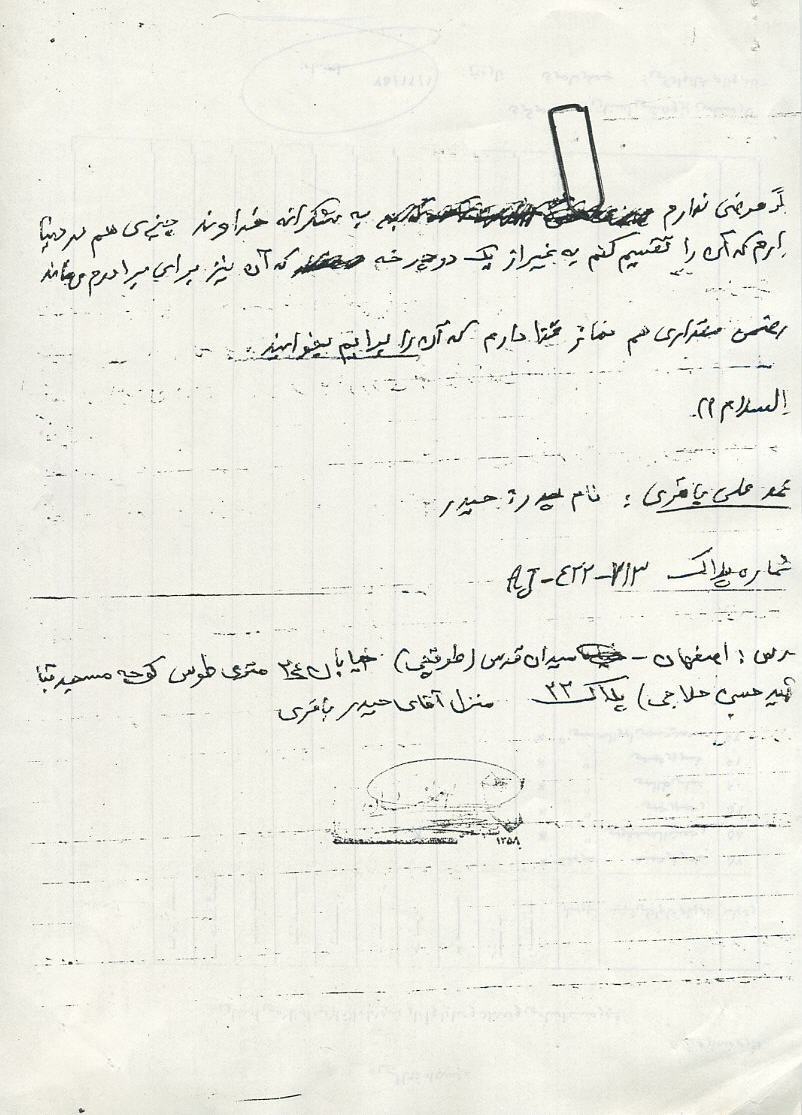 قرضی ندارم به شکرانه خداوند چیزی هم در دنیا
ندارم که آن را تقسیم کنم به غیر از یک دوچرخه که آن نیز برای برادرم
ضمن مقداری هم نماز قضا دارم که آن را برایم بخوانید.
والسلام
محمد علی باقری : نام پدر : حیدر
شماره پلاک AJ-۴۲۲-۷۱۳
آدرس : اصفهان - میدان قدس (طوقچی) خیابان ۲۴ متری طوس کوچه مسجد قبا
شهید حسن حلاجی) پلاک ۲۲ منزل آقای حیدر باقری
۱۳۵۸